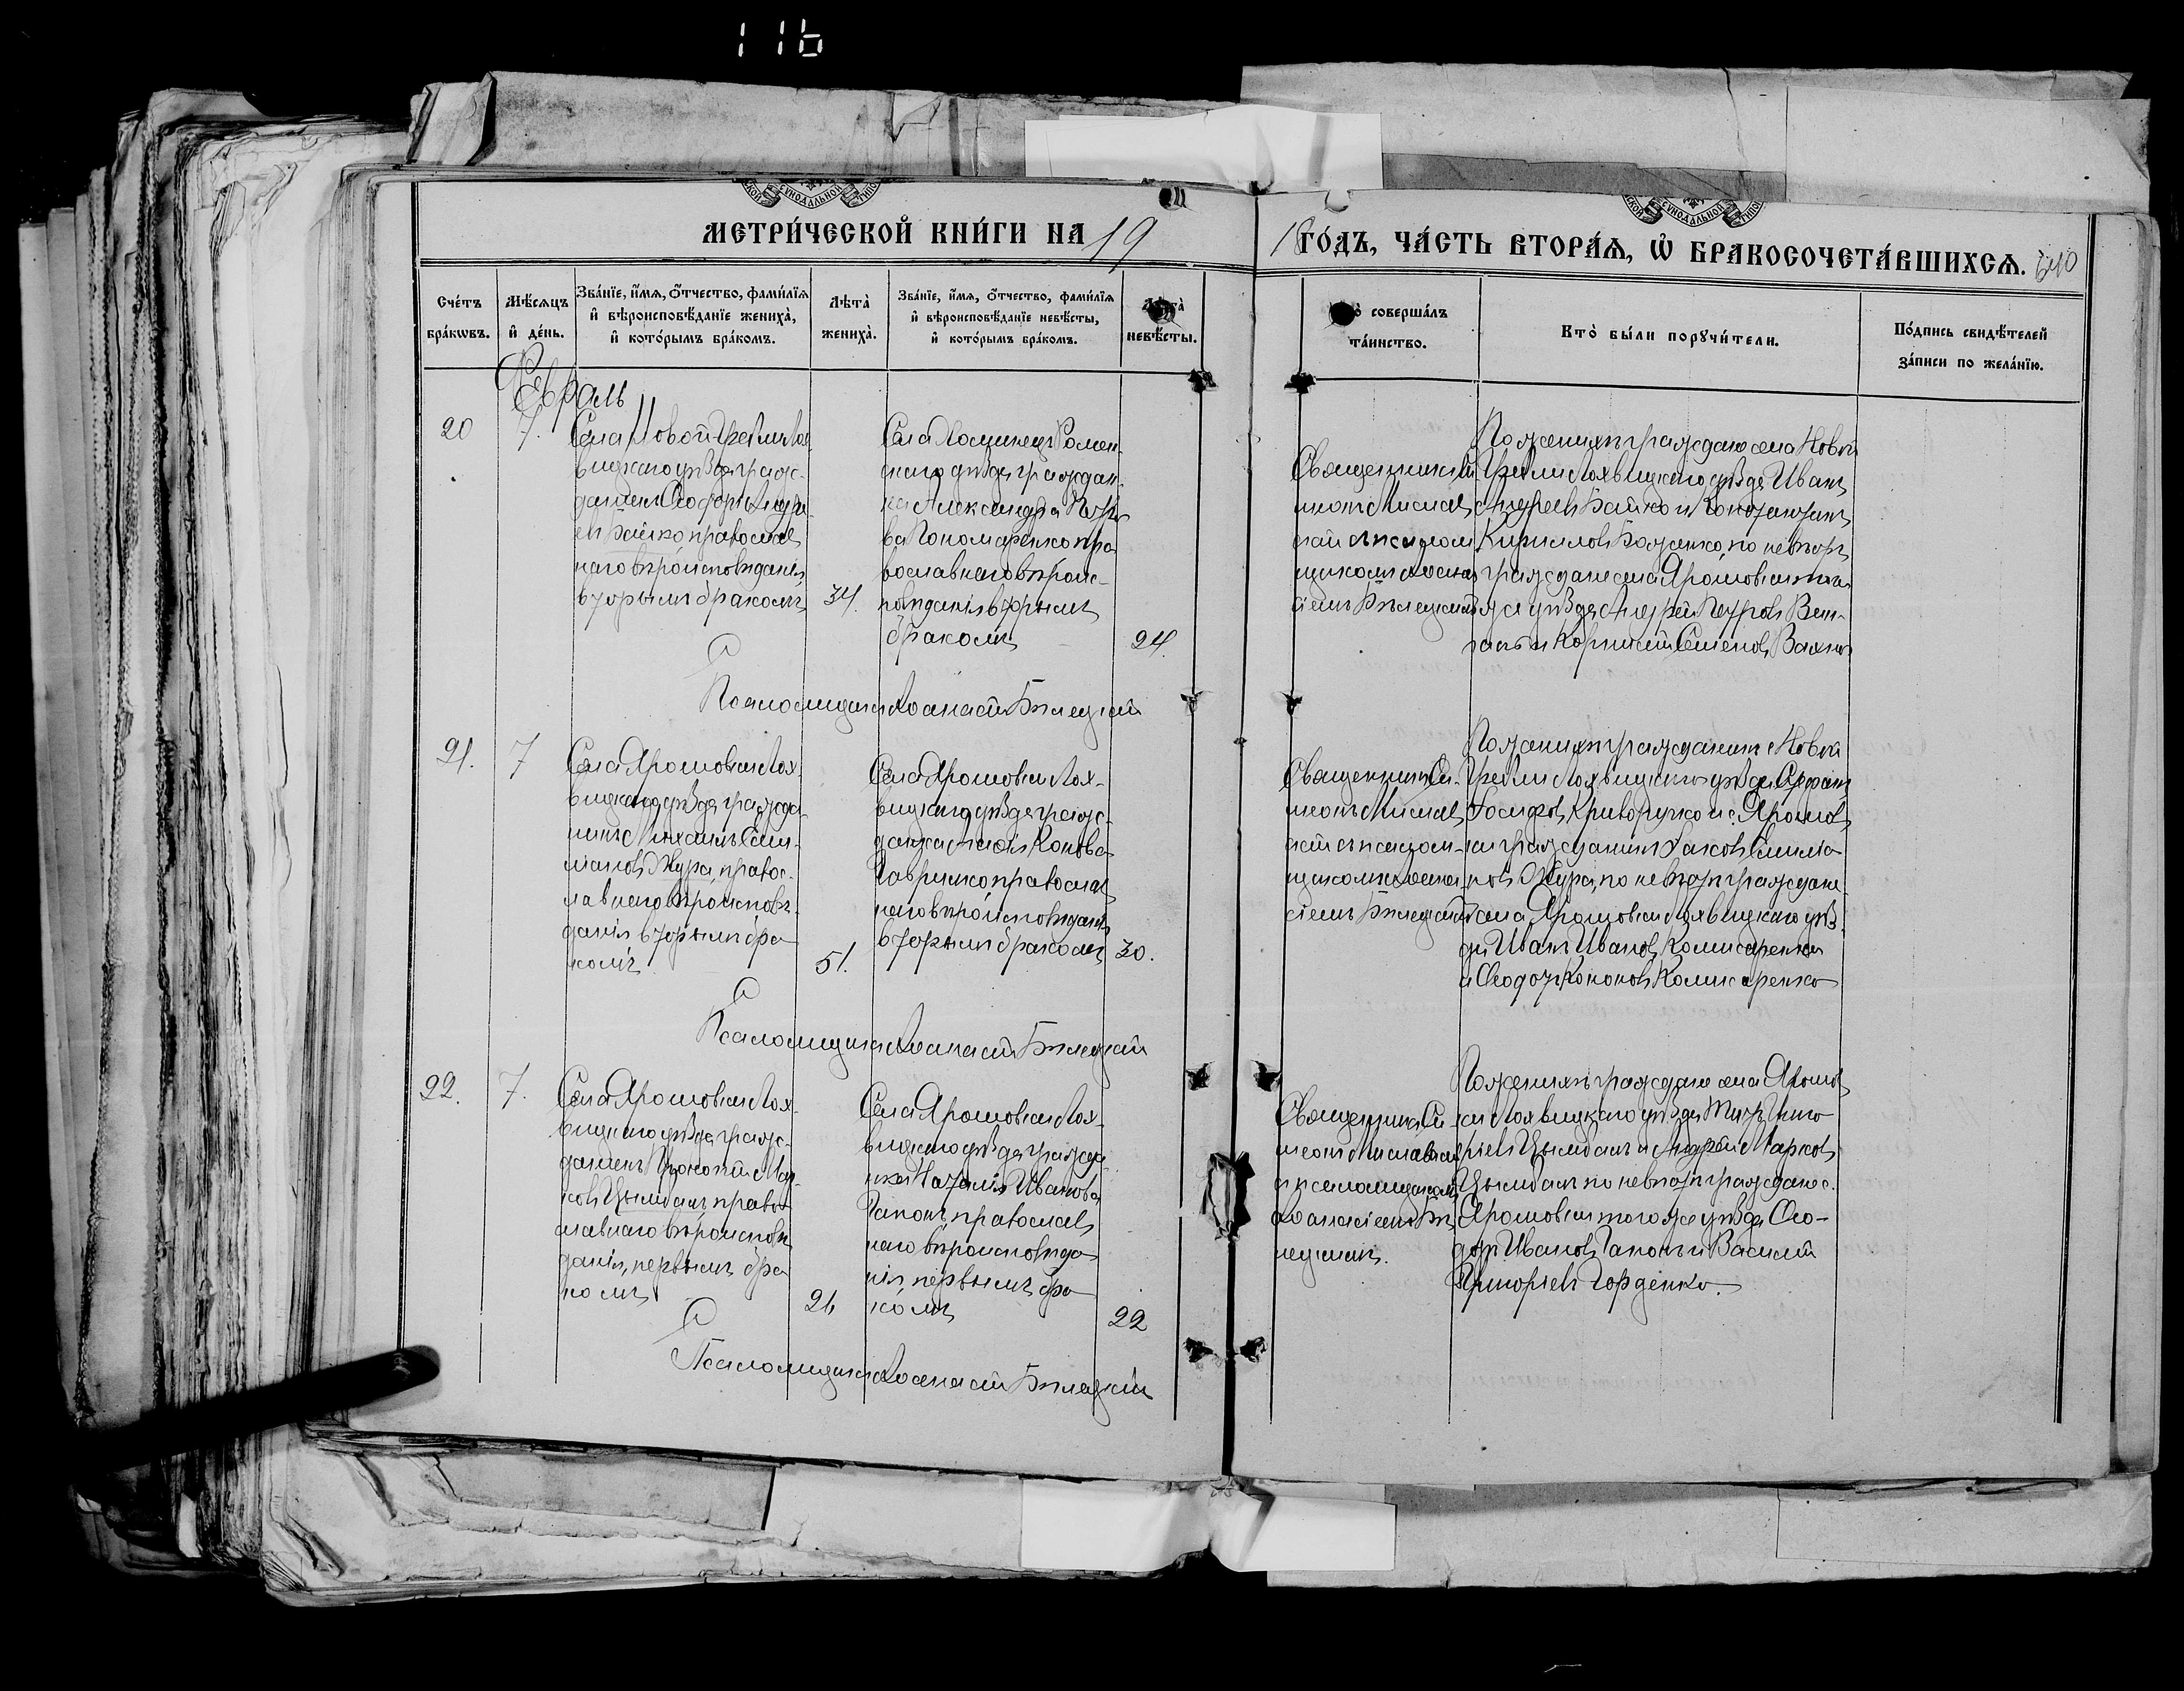 116
МЕТРИ́ЧЕСКОЙ КНИ́ГИ НА 19
18 ГО́ДЪ, ЧА́СТЬ ВТОРА́Я, Ѡ БРАКОСОЧЕТА́ВШИХСЯ.
Сче́тъ бра́кѡвъ.
Мѣ́сяцъ и де́нь.
Зва́нїе, и́мя, о́тчество, фами́лїя и вѣроисповѣ́данїе жениха̀, и кото́рымъ бра́комъ.
Лѣта̀ жениха̀.
Зва́нїе, и́мя, о́тчество, фами́лїя и вѣроисповѣ́данїе невѣ́сты, и кото́рымъ бра́комъ.
невѣ́сты.
соверша́лъ та́инство.
Кто̀ бы́ли порꙋчи́тели.
По́дпись свидѣ́телей за́писи по жела́нїю.
Февраль
20
7.
Села Новой Гребли Лох-
вицкаго уѣзда граж-
данинъ Феодоръ Андре-
евъ Байко православ
наго вѣроисповѣданія
вторымъ бракомъ
34.
Села Ромен-
скаго уѣзда граждан-
ка Александра Петро
ва Пономаренко пра
вославнаго вѣроис-
повѣданія вторымъ
бракомъ
24.
Священникъ Си-
меонъ Мислав
скій съ псалом
щикомъ Афана
сіемъ Бѣлецкимъ
По женихѣ граждане села Новой
Гребли Лохвицкаго уѣзда Иванъ
Андреевъ Байко и Константинъ
Кирилловъ Боженко, по невѣстѣ
граждане села Ярошовки того
же уѣзда Андрей Петровъ
и Корнилій Семеновъ
Псаломщикъ Афанасій Бѣлецкій
21.
7
Села Ярошовки Лох-
вицкаго уѣзда гражда-
нинъ Михаилъ Сим-
моновъ Жура, правос-
лавнаго вѣроисповѣ-
данія вторымъ бра
комъ
51.
Села Ярошовки Лох-
вицкаго уѣзда граж-
данка Конова
Гавришко православ
наго вѣроисповѣданія
вторымъ бракомъ
30.
Священникъ Си-
меонъ Мислав
скій съ псалом-
щикомъ Афана-
сіемъ Бѣлецкимъ
По женихѣ гражданинъ с. Новой
Гребли Лохвицкаго уѣзда
Іосифовъ Криворучко и с. Ярошов
ки гражданинъ Іаковъ Симмо
новъ Жура, по невѣстѣ граждане
села Ярошовки Лохвицкаго уѣз
да Иванъ Ивановъ Комисаренко
и Феодотъ Кононовъ Комисаренко
Псаломщикъ Афанасій Бѣлецкій
22.
7.
Села Ярошовки Лох-
вицкаго уѣзда граж-
данинъ Прокопій Мар-
ковъ Цымбалъ, право
славнаго вѣроисповѣ
данія, первымъ бра
комъ
21
Села Ярошовки Лох-
вицкаго уѣзда гражда
нка Наталія Иванова
Гапонъ, православ
наго вѣроисповѣда
нія, первымъ бра
комъ
22
Священникъ Си-
меонъ Миславскій
съ псаломщикомъ
Афанасіемъ Бѣ
лецкимъ.
По женихѣ граждане села Ярошов
ки Лохвицкаго уѣзда Титъ
Цымбалъ и Андрей Марковъ
Цымбалъ по невѣстѣ граждане с.
Ярошовки того же уѣзда Фео-
доръ Ивановъ Гапонъ и Василій
Григорьевъ Горденко.
Псаломщикъ Афанасій Бѣлецкій